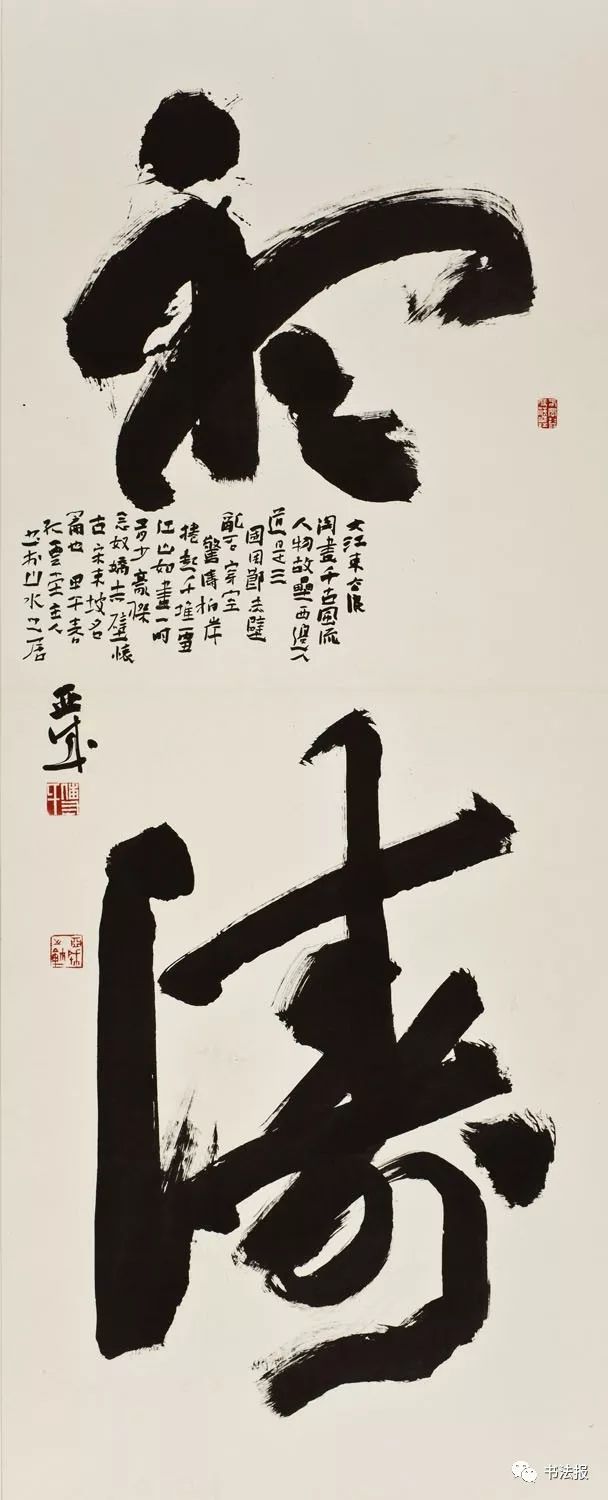 濤
大江東去浪
淘盡千古風流
人物故壘西邊人
道是三
國周郎赤壁
亂石穿空
驚濤拍岸
捲起千堆雪
江山如畫一時
多少豪傑
念奴嬌赤壁懷
古宋東坡名
篇也甲午春
雲堂主人
山水之居
亞成
书法报